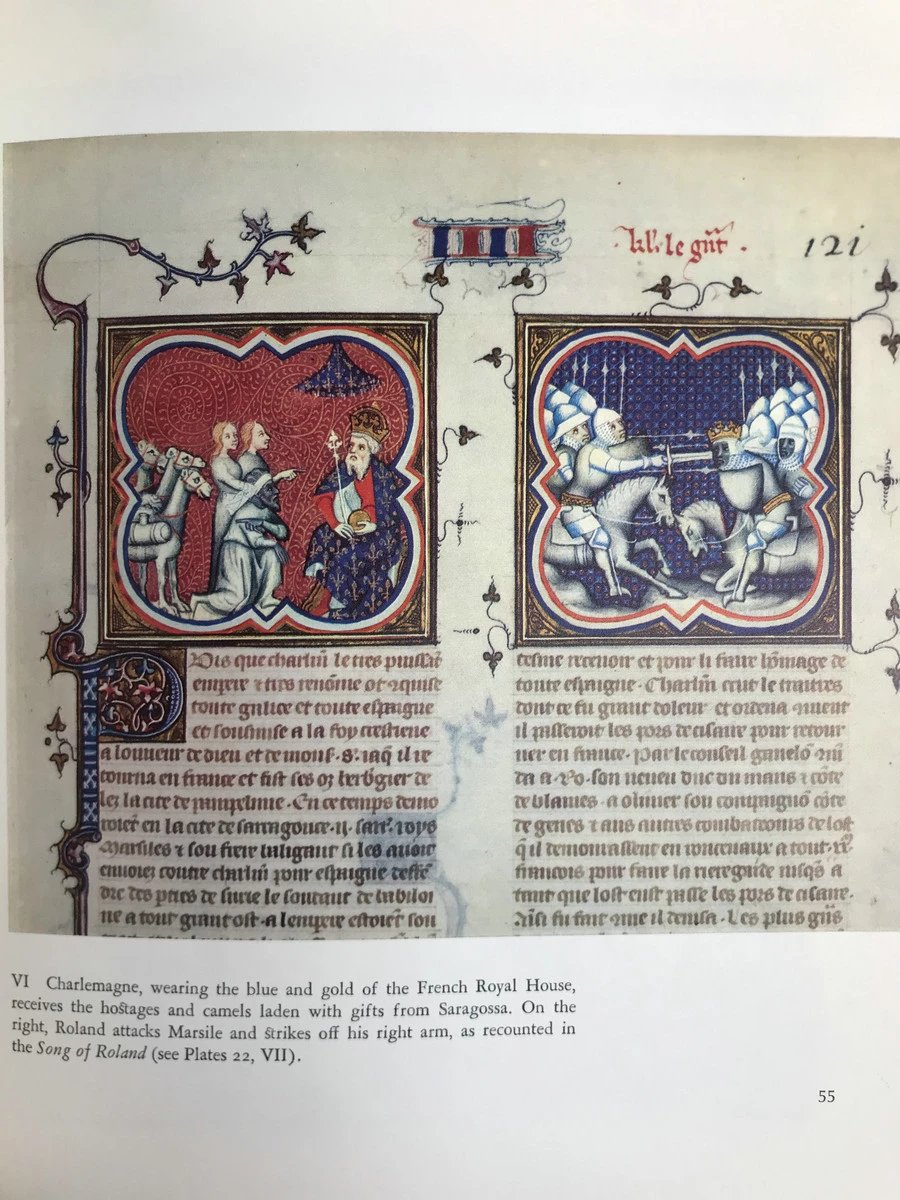 kl'. le gñt.
121
Puis que charlm̃ le tres puissãt
empere ⁊ tres renõme ot aquise
toute galice et toute espaigne
et soumise a la foy crestiene
a lonneur de dieu et de mons. s. iaq̃. il re
tourna en france et fist ses oz herbgier de
lez la cite de pampelune. En ce temps demo
roiẽt en la cite de sarragouce .ij. sarr. roys
Marsiles ⁊ son frere baligant si les auoit
enuoiez contre charlm̃ pour espaigne deffẽ
dre des pties de surie le soutant de babiloi
ne a tout grant ost. a lempere estoiẽt sou
cesme receuoir et pour li faire hõmage de
toute espaigne. Charlm̃ crut le traitre
dont ce fu grant doleur et ordena quient
il passeroit les pors de cisaire pour retour
ner en france. Par le conseil ganelõ
da a Ro. son neueu duc du mans ⁊ cõte
de blaiues. a oliuier son compaignõ cõte
de genes ⁊ aus autres combateours de lost
q̃ il demourassent en ronceuaux a tout .xx.
francois pour faire la rieregarde iusq̃s a
tant que lost eust passe les pors de cisaire.
Ainsi fu fait que il deuisa. Les plus gñs
VI Charlemagne, wearing the blue and gold of the French Royal House,
receives the hostages and camels laden with gifts from Saragossa. On the
right, Roland attacks Marsile and strikes off his right arm, as recounted in
the Song of Roland (see Plates 22, VII).
55